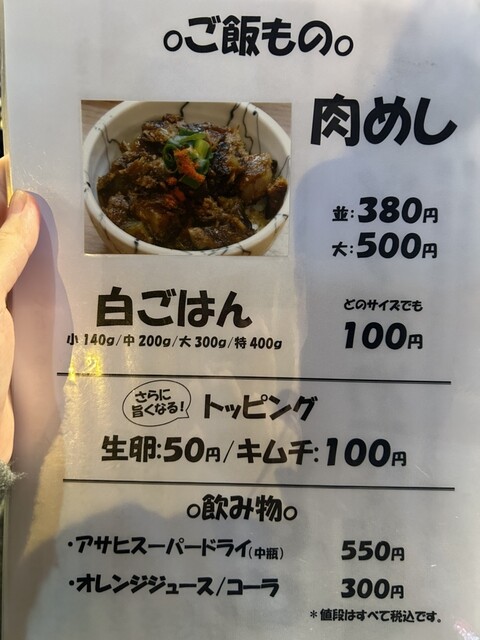 ○ご飯もの○
肉めし
並:380円
大:500円
白ごはん
小140g/中200g/大300g/特400g
どのサイズでも
100円
さらに
旨くなる!
トッピング
生卵:50円/キムチ:100円
○飲み物○
・アサヒスーパードライ(中瓶) 550円
・オレンジジュース/コーラ 300円
*値段はすべて税込です。